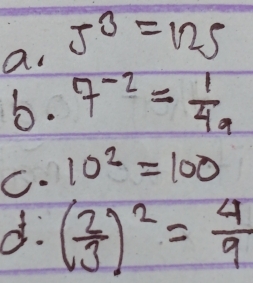 a. 5³ = 125
b. 7⁻² = 1/49
c. 10² = 100
d. (2/3)² = 4/9